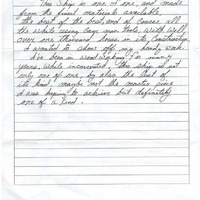 This Ship is one of one, and made
from the finest materials available
the best of the best, and of course all
the while using cave man tools. With well
over one thousand hours in its construction
I wanted to show off my handy work.
I've been in wood working for many
years, while incarcerated, this ship is not
only one of one, by also the last of
its kind. maybe not the master piece
I was hoping to achieve but definitely
one of a kind.